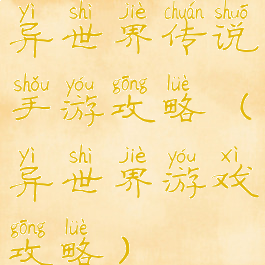 yì shì jiè chuán shuō
异世界传说
shǒu yóu gōng lüè
手游攻略（
yì shì jiè yóu xì
异世界游戏
gōng lüè
攻略）